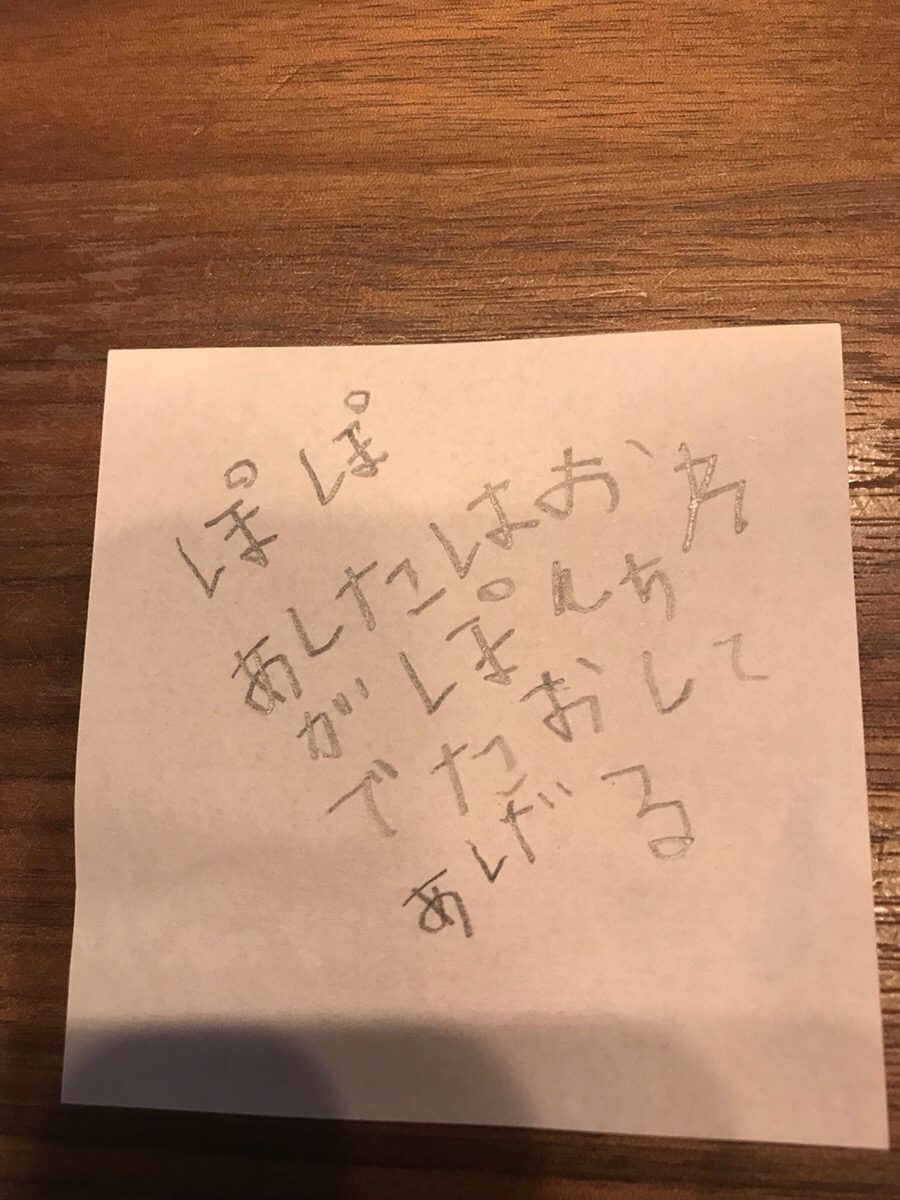 ぽぽ
あしたはおれ
がぽんち
でたおして
あげる